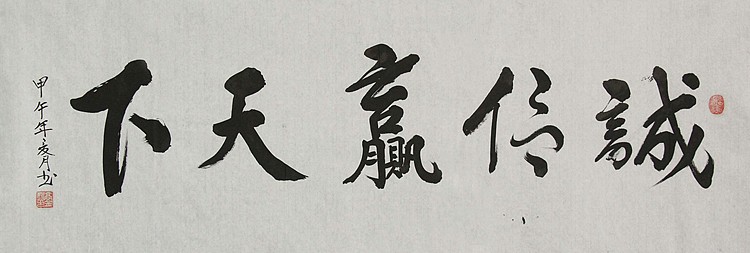 誠信贏天下
甲午年夏月书